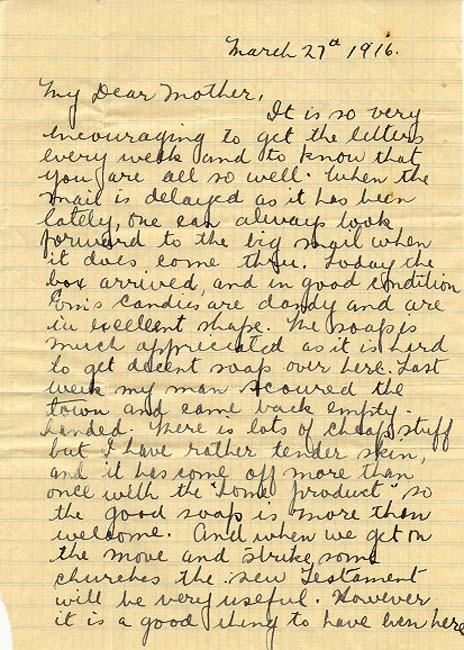 March 27th 1916.
My Dear Mother,
It is so very
encouraging to get the letters
every week and to know that
you are all so well. When the
mail is delayed as it has been
lately, one can always look
forward to the big mail when
it does come thru. Today the
box arrived, and in good condition
Tom's candies are dandy and are
in excellent shape. The soap is
much appreciated as it is hard
to get decent soap over here. Last
week my man scoured the
town and came back empty-
handed. There is lots of cheap stuff
but I have rather tender skin,
and it has come off more than
once with the "home product" so
the good soap is more than
welcome. And when we get on
the move and strike some
churches the new Testament
will be very useful. However
it is a good thing to have even here